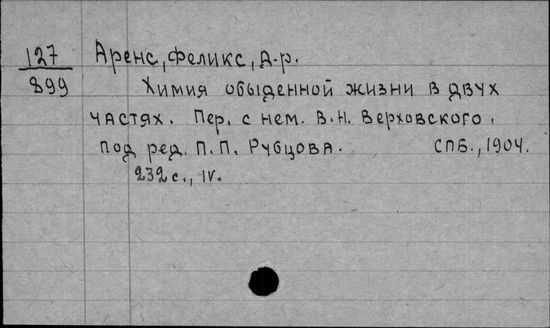 127 Аренс, Феликс, д-р.
899 Химия обыденной жизни в двух
частях. Пер. с нем. В.Н. Верховского.
Под ред. П.П. Рубцова. СПБ., 1904.
232 с., IV.